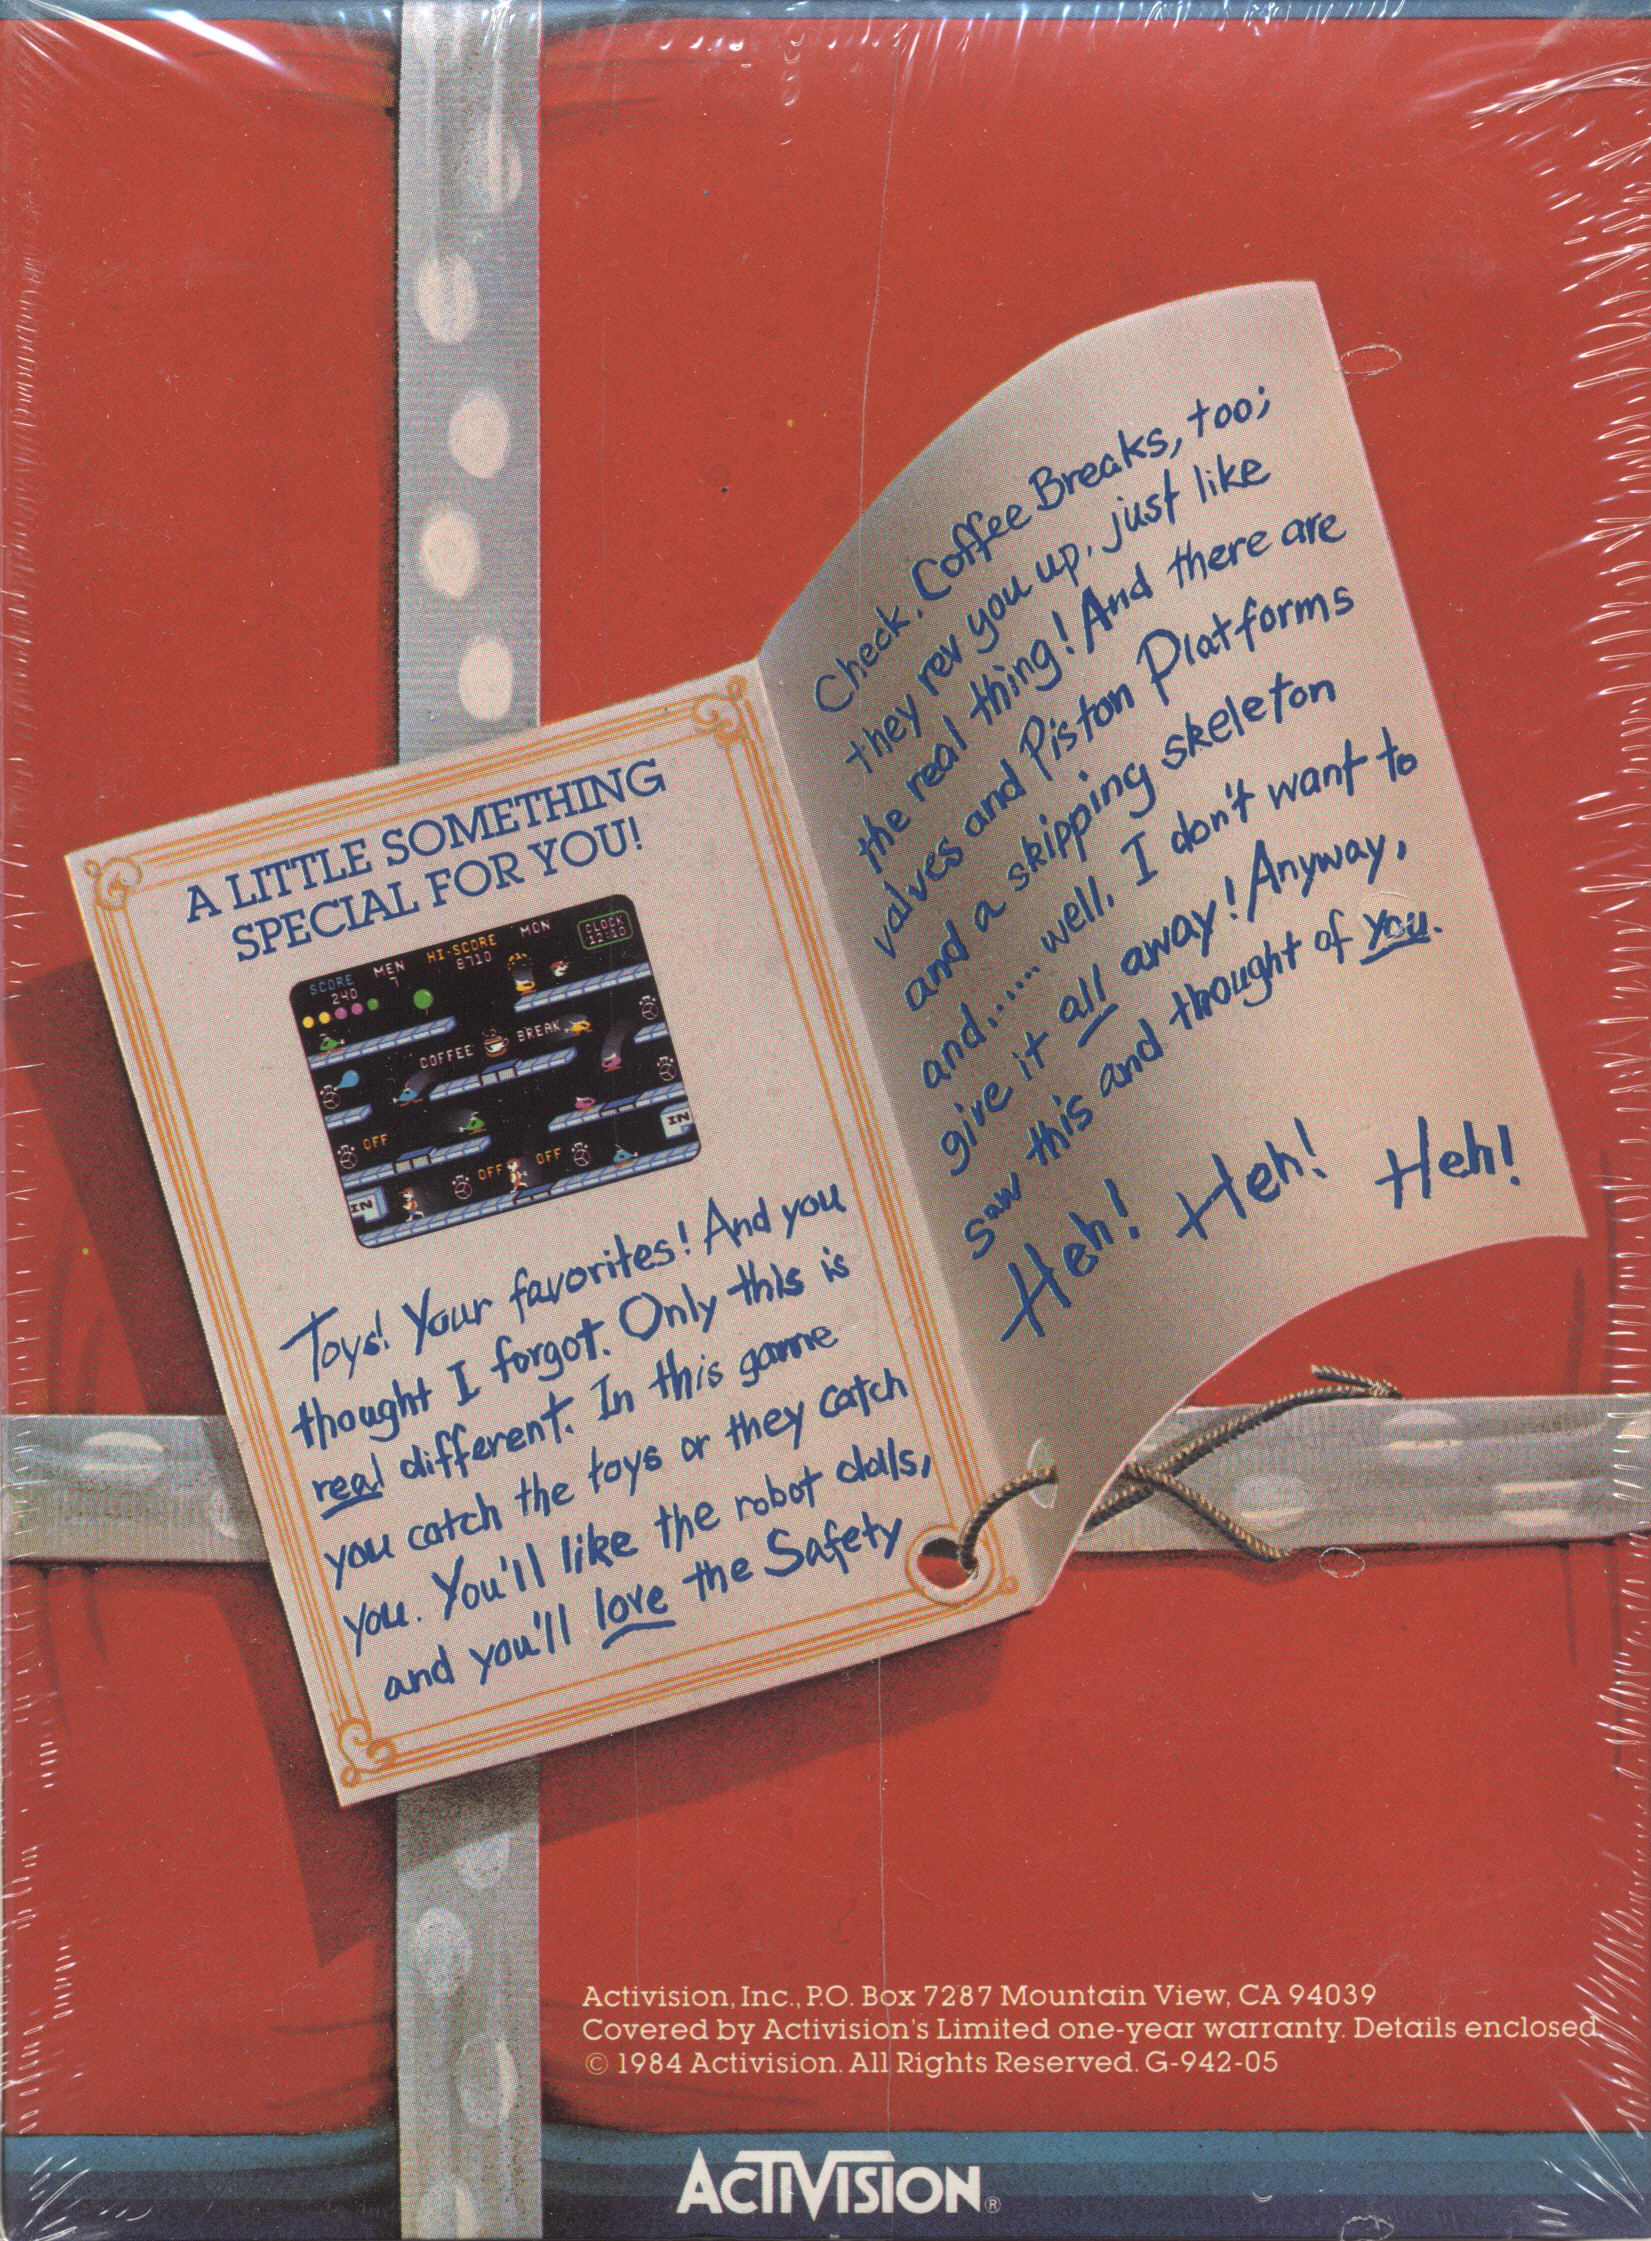 A LITTLE SOMETHING
SPECIAL FOR YOU!
SCORE
240
MEN
7
HI-SCORE
8710
MON
CLOCK
12:10
COFFEE BREAK
OFF
IN
OFF
OFF
IN
Toys! Your favorites! And you
thought I forgot. Only this is
real different. In this game
you catch the toys or they catch
you. You'll like the robot dolls,
and you'll love the Safety
Check. Coffee Breaks, too;
they rev you up, just like
the real thing! And there are
valves and Piston Platforms
and a skipping skeleton
and..... well, I don't want to
give it all away! Anyway,
saw this and thought of you.
Heh! Heh! Heh!
Activision, Inc., P.O. Box 7287 Mountain View, CA 94039
Covered by Activision's Limited one-year warranty. Details enclosed.
© 1984 Activision. All Rights Reserved. G-942-05
ACTIVISION®